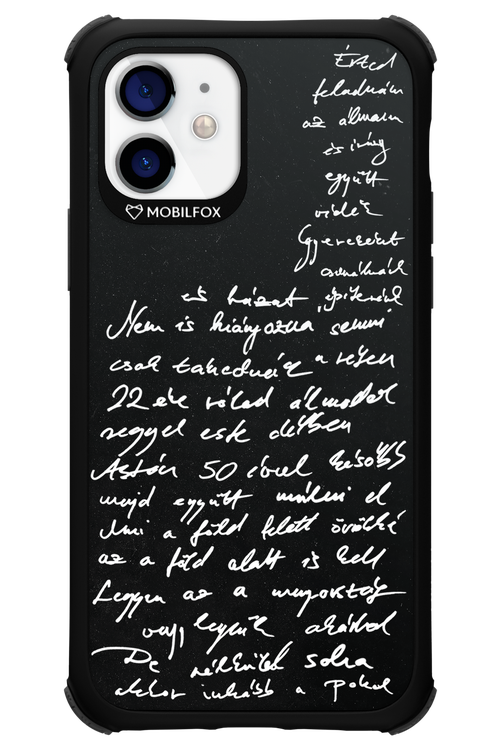 MOBILFOX
Érted
feladnám
az álmam
és így
együtt
vidék
Gyerekeket
csinálnánk
és házat építenénk
Nem is hiányozna semmi
csak takednék a réten
22 éve rólad álmodok
reggel este délben
Aztán 50 évvel később
majd együtt múlni el
Ami a föld felett örökké
az a föld alatt is kell
Legyen az a mennyország
vagy legyünk akárhol
De nélküled soha
akkor inkább a Pokol